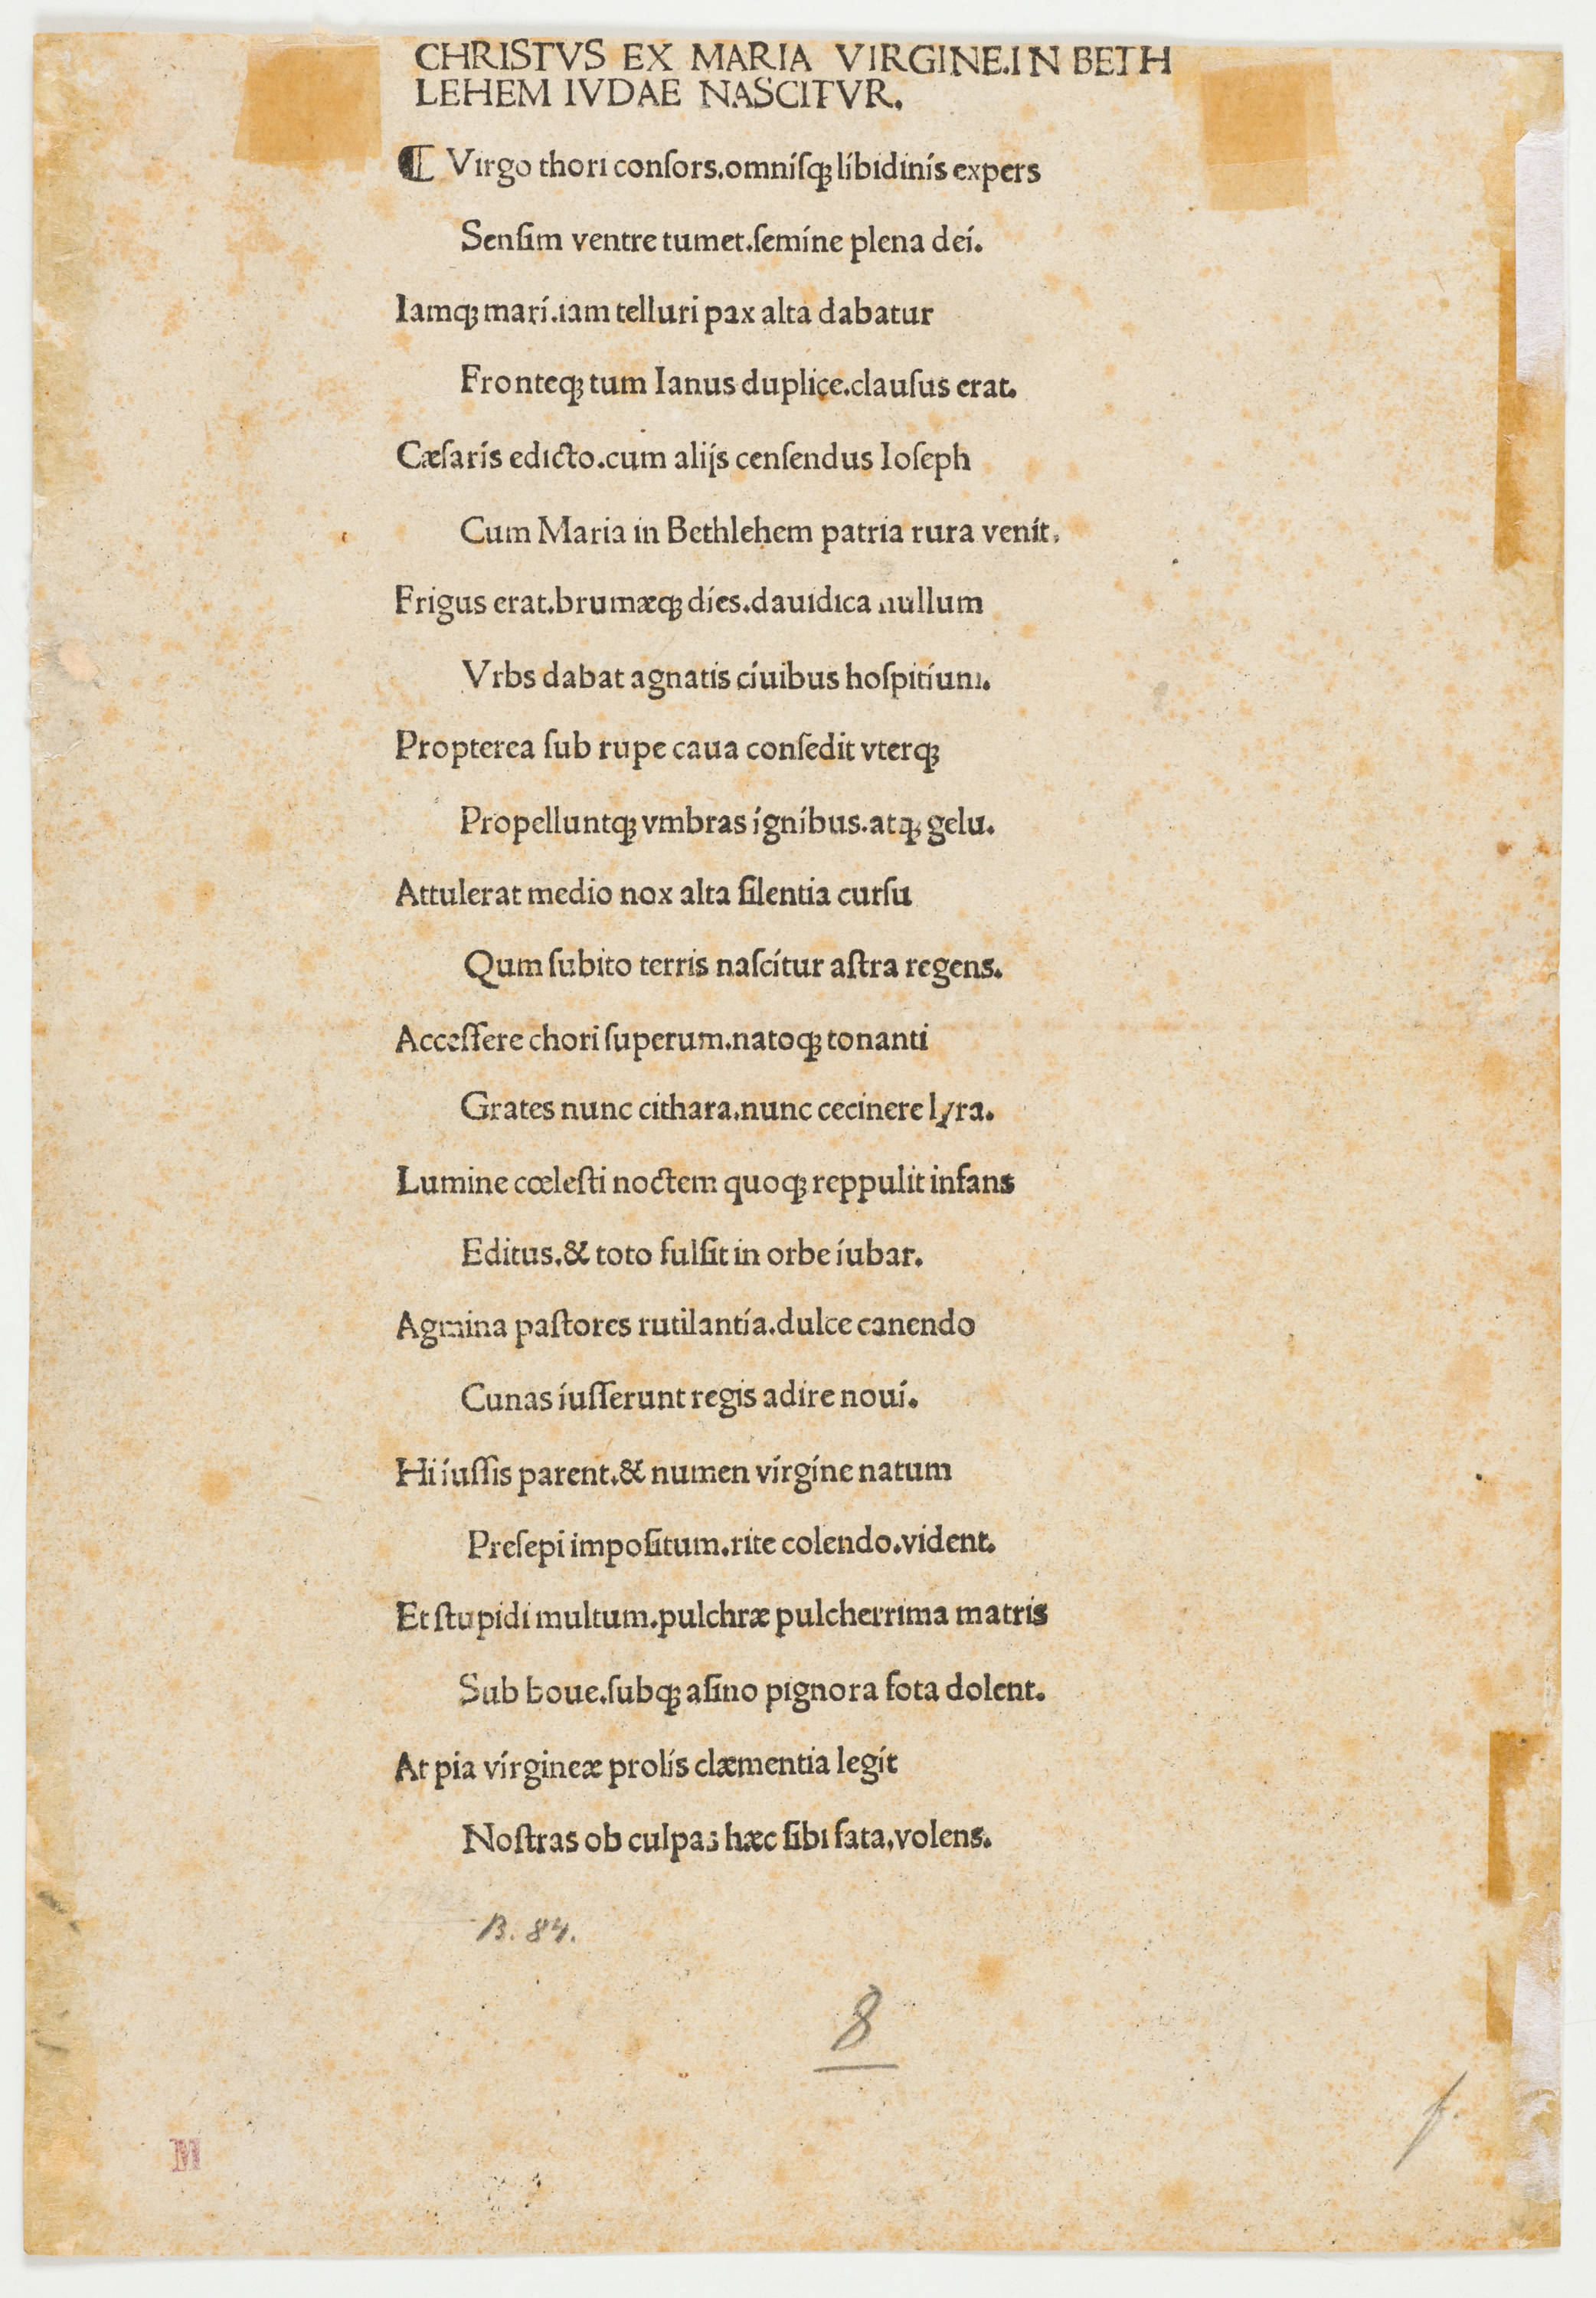 CHRISTVS EX MARIA VIRGINE.IN BETH
LEHEM IVDAE NASCITVR.
⸿ Virgo thori conſors.omniſqꝫ libidinis expers
Senſim ventre tumet.ſemine plena dei.
Iamqꝫ mari.iam telluri pax alta dabatur
Fronteqꝫ tum Ianus duplice.clauſus erat.
Cæſaris edicto.cum alijs cenſendus Ioſeph
Cum Maria in Bethlehem patria rura venit.
Frigus erat.brumæqꝫ dies.dauidica nullum
Vrbs dabat agnatis ciuibus hoſpitium.
Propterea ſub rupe caua conſedit vterqꝫ
Propelluntqꝫ vmbras ignibus.atqꝫ gelu.
Attulerat medio nox alta ſilentia curſu
Qum ſubito terris naſcitur aſtra regens.
Acceſſere chori ſuperum.natoqꝫ tonanti
Grates nunc cithara.nunc cecinere lyra.
Lumine cœleſti noctem quoqꝫ reppulit infans
Editus.& toto fulſit in orbe iubar.
Agmina paſtores rutilantia.dulce canendo
Cunas iuſſerunt regis adire noui.
Hi iuſſis parent.& numen virgine natum
Preſepi impoſitum.rite colendo.vident.
Et ſtupidi multum.pulchræ pulcherrima matris
Sub boue.ſubqꝫ aſino pignora fota dolent.
At pia virgineæ prolis clæmentia legit
Noſtras ob culpas hæc ſibi fata.volens.
B. 84.
8
M